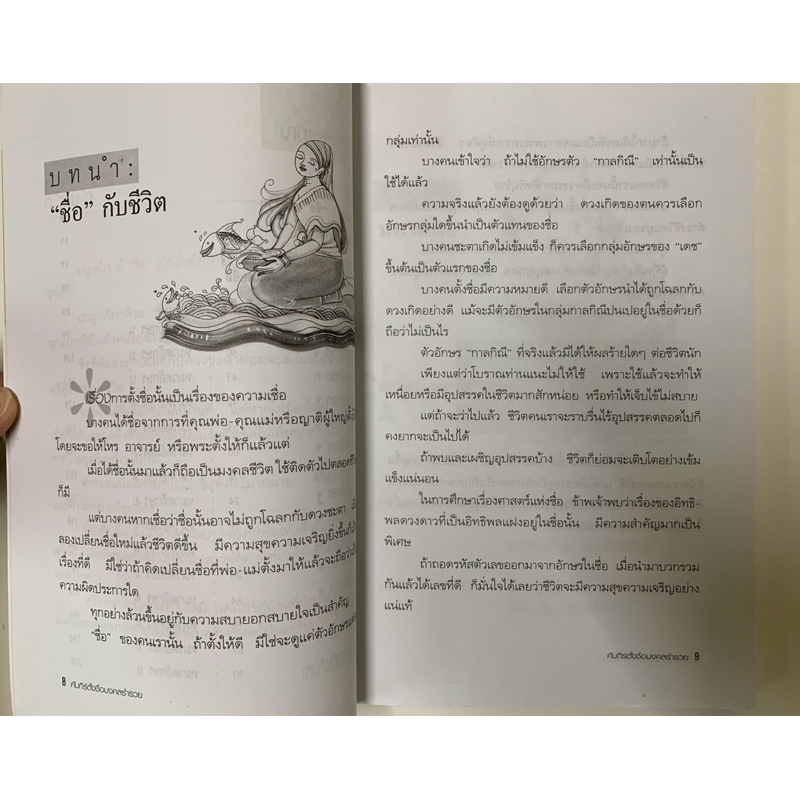 บทนำ :
“ชื่อ” กับชีวิต
เรื่องการตั้งชื่อนั้นเป็นเรื่องของความเชื่อ
บางคนได้ชื่อจากการที่คุณพ่อ-คุณแม่หรือญาติผู้ใหญ่ตั้ง
โดยจะขอให้โหร อาจารย์ หรือพระตั้งให้ก็แล้วแต่
เมื่อได้ชื่อนั้นมาแล้วก็ถือเป็นมงคลชีวิต ใช้ติดตัวไปตลอด
ก็มี
แต่บางคนหากเชื่อว่าชื่อนั้นอาจไม่ถูกโฉลกกับดวงชะตา
ลองเปลี่ยนชื่อใหม่แล้วชีวิตดีขึ้น มีความสุขความเจริญยิ่งขึ้น
เรื่องที่ดี มิใช่ว่าถ้าคิดเปลี่ยนชื่อที่พ่อ-แม่ตั้งมาให้แล้วจะถือว่า
ความผิดประการใด
ทุกอย่างล้วนขึ้นอยู่กับความสบายอกสบายใจเป็นสำคัญ
“ชื่อ” ของคนเรานั้น ถ้าตั้งให้ดี มิใช่จะดูแค่ตัวอักษร
8 คัมภีร์ตั้งชื่อมงคลร่ำรวย
กลุ่มเท่านั้น
บางคนเข้าใจว่า ถ้าไม่ใช้อักษรตัว “กาลกิณี” เท่านั้นเป็น
ใช้ได้แล้ว
ความจริงแล้วยังต้องดูด้วยว่า ดวงเกิดของตนควรเลือก
อักษรกลุ่มใดขึ้นนำเป็นตัวแทนของชื่อ
บางคนชะตาเกิดไม่เข้มแข็ง ก็ควรเลือกกลุ่มอักษรของ “เดช”
ขึ้นต้นเป็นตัวแรกของชื่อ
บางคนตั้งชื่อมีความหมายดี เลือกตัวอักษรนำได้ถูกโฉลกกับ
ดวงเกิดอย่างดี แม้จะมีตัวอักษรในกลุ่มกาลกิณีปนเปอยู่ในชื่อด้วยก็
ถือว่าไม่เป็นไร
ตัวอักษร “กาลกิณี” ที่จริงแล้วมิได้ให้ผลร้ายใดๆ ต่อชีวิตนัก
เพียงแต่ว่าโบราณท่านแนะไม่ให้ใช้ เพราะใช้แล้วจะทำให้
เหนื่อยหรือมีอุปสรรคในชีวิตมากสักหน่อย หรือทำให้เจ็บไข้ไม่สบาย
แต่ถ้าจะว่าไปแล้ว ชีวิตคนเราจะราบรื่นไร้อุปสรรคตลอดไปก็
คงยากจะเป็นไปได้
ถ้าพบและเผชิญอุปสรรคบ้าง ชีวิตก็ย่อมจะเติบโตอย่างเข้ม
แข็งแน่นอน
ในการศึกษาเรื่องศาสตร์แห่งชื่อ ข้าพเจ้าพบว่าเรื่องของอิทธิ-
พลดวงดาวที่เป็นอิทธิพลแฝงอยู่ในชื่อนั้น มีความสำคัญมากเป็น
พิเศษ
ถ้าถอดรหัสตัวเลขออกมาจากอักษรในชื่อ เมื่อนำมาบวกรวม
กันแล้วได้เลขที่ดี ก็มั่นใจได้เลยว่าชีวิตจะมีความสุขความเจริญอย่าง
แน่แท้
คัมภีร์ตั้งชื่อมงคลร่ำรวย 9